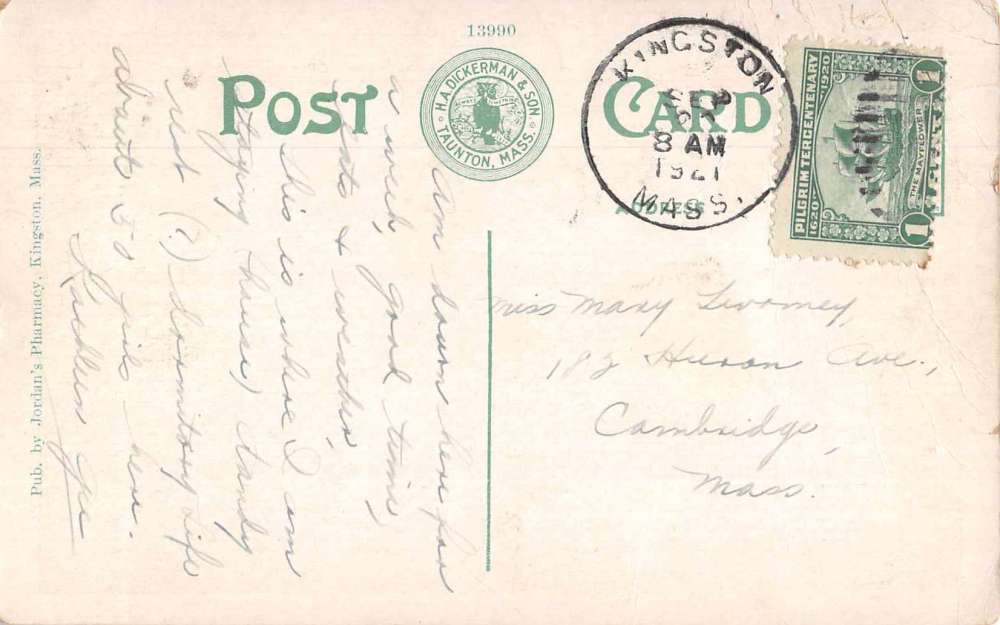 13990
POST CARD
H.A. DICKERMAN & SON
TAUNTON, MASS.
KINGSTON
SEP
8 AM
1921
MASS.
PILGRIM TERCENTENARY
1620 1920
THE MAYFLOWER
1 1
ADDRESS
Am down here for
a week, good time,
eats & weather.
This is where I am
staying (house) dandy
rest (?) dormitory life
about 50 girls here.
Miss Mary Twomey,
182 Huron Ave.,
Cambridge,
Mass.
Pub. by Jordan's Pharmacy, Kingston, Mass.